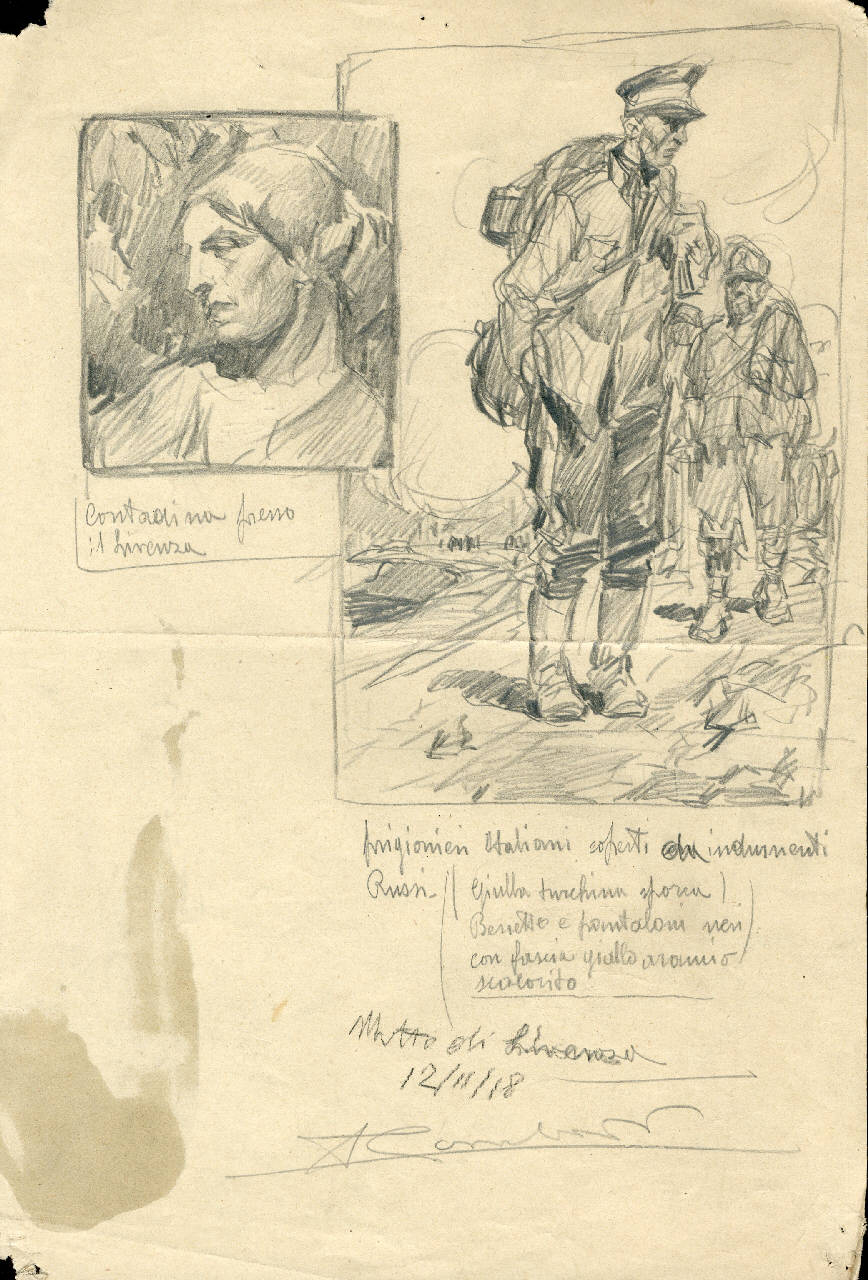 Contadina presso
il Livenza
prigionieri Italiani coperti da indumenti
Russi - (Giubba turchina sporca)
Berretto e pantaloni neri
con fascia giallo arancio
scolorito
Motto di Livenza
12/11/18